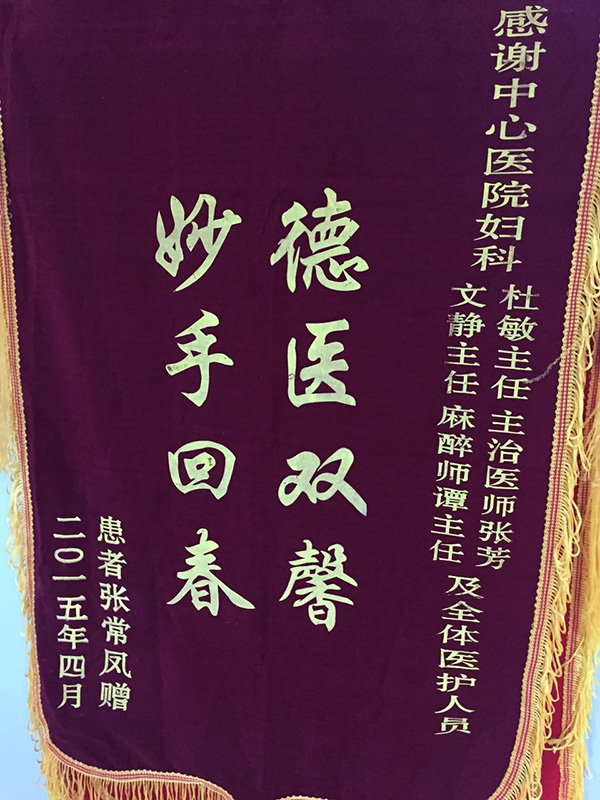 感谢中心医院妇科
杜敏主任 主治医师张芳
文静主任 麻醉师谭主任
及全体医护人员
德医双馨
妙手回春
患者张常凤赠
二〇一五年四月